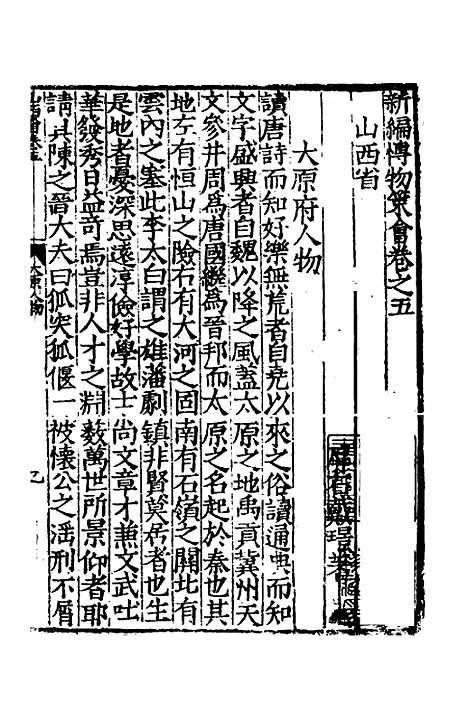 新編博物策會卷之五
山西省
大原府人物
讀唐詩而知好樂無荒者自堯以來之俗讀通典而知
文字盛興者自魏以降之風蓋太原之地禹貢冀州天
文參井周爲唐國繼爲晉邦而太原之名起於秦也其
地左有恒山之險右有大河之固南有石嶺之關北有
雲內之塞此李太白謂之雄藩劇鎮非賢莫居者也生
是地者憂深思遠淳儉好學故士尚文章才兼文武吐
華發秀日益奇焉豈非人才之淵藪萬世所景仰者耶
請具陳之晉大夫曰狐突狐偃一被懷公之滛刑不屑